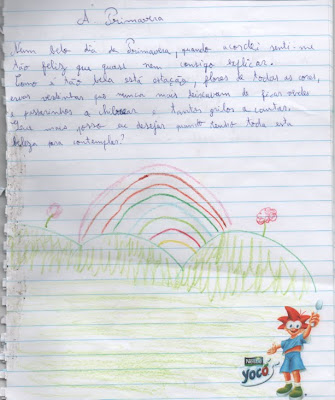 A Primavera
Num belo dia de Primavera, quando acordei senti-me
tão feliz que quase nem consigo explicar.
Como é tão bela esta estação, flores de todas as cores,
ervas verdinhas que nunca mais deixavam de ficar verdes
e passarinhos a chilrear e tantos grilos a cantar.
Que mais posso eu desejar quando tenho toda esta
beleza para contemplar?
Nestlé
YOCO